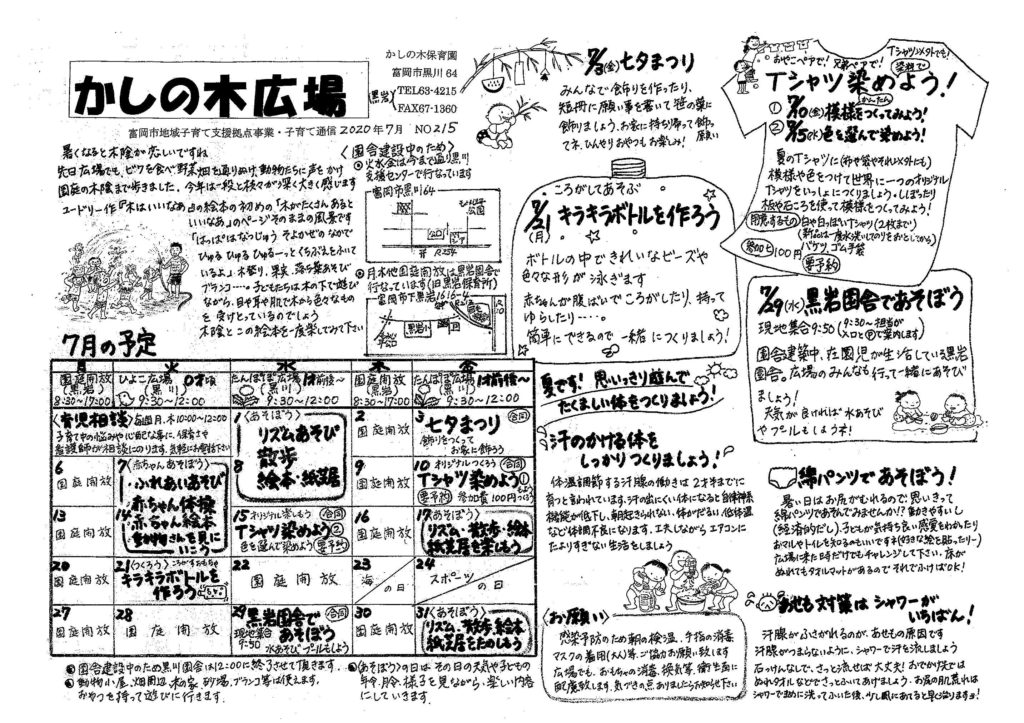 かしの木広場
かしの木保育園
富岡市黒川64
(黒岩)
TEL63-4215
FAX67-1360
富岡市地域子育て支援拠点事業・子育て通信 2020年7月 NO215
暑くなると木陰が恋しいですね
先日広場でも、ビワを食べ野菜畑を通りぬけ、動物たちに声をかけ
園庭の木陰まで歩きました。今年は一段と枝々が深く大きく感じます
ユードリー作『木はいいなあ』の絵本の初めの「木がたくさんあると
いいなあ」のページそのままの風景です
「はっぱはなつじゅう そよかぜのなかで
ひゅる ひゅる ひゅるーっと くちぶえをふいて
いるよ」木登り、果実、落ち葉あそび
ブランコ……子どもたちは木の下で遊び
ながら、目や耳や肌で木から色々なもの
を受けとっているのでしょう
木陰とこの絵本を一度楽しんでみて下さい
〈園舎建設中のため〉
火水金は今まで通り黒川
支援センターで行なっています
富岡市黒川64
もみじ平公園
R254
月木他園庭開放は黒岩園舎で
行なっています(旧黒岩保育所)
富岡市下黒岩1616-4
黒岩小
7/3(金)七夕まつり
みんなで飾りを作ったり、
短冊に願い事を書いて笹の葉に
飾りましょう。お家に持ち帰って飾っ
てネ、ひんやりおやつもお楽しみ!
願い
ころがしてあそぶ
7/21(月)キラキラボトルを作ろう
ボトルの中できれいなビーズや
色々な形が泳ぎます
赤ちゃんが腹ばいでころがしたり、持って
ゆらしたり……。
簡単にできるので一緒につくりましょう!
Tシャツ以外でも!
おやこペアで!兄弟ペアで!
染料で
Tシャツ染めよう!
①7/10(金)模様をつくってみよう!
かんたん
②7/15(水)色を選んで染めよう!
夏のTシャツに(布や袋やそれ以外にも)
模様や色をつけて世界に一つのオリジナル
Tシャツをいっしょにつくりましょう。しぼったり
板や石ころを使って模様をつくってみよう!
用意するもの 白や白っぽいTシャツ(2枚まで)
(新品は一度水洗いしてのりをおとしてから)
バケツ ゴム手袋
参加ヒ 100円 要予約
7/29(水)黒岩園舎であそぼう
現地集合9:50(9:30〜担当が
入口とPで案内します)
園舎建築中、在園児が生活している黒岩
園舎。広場のみんなも行って一緒にあそび
ましょう!
天気が良ければ水あそび
やプールもしようネ!
7月の予定
月 火 水 木 金
園庭開放(黒岩)8:30〜17:00
ひよこ広場(黒川)0才頃 9:30〜12:00
たんぽぽ広場(黒川)1才前後〜 9:30〜12:00
園庭開放(黒岩)8:30〜17:00
たんぽぽ広場(黒川)1才前後〜 9:30〜12:00
育児相談 毎週月、木10:00〜12:00
子育て中の悩みや心配な事に、保育士や
看護師が相談にのります。気軽にお電話下さい
1〈あそぼう〉
リズムあそび
散歩
絵本・紙芝居
2 園庭開放
3 七夕まつり 合同
飾りをつくって
お家に飾ろう
6 園庭開放
7〈赤ちゃんあそぼう〉
・ふれあいあそび
・赤ちゃん体操
・赤ちゃん絵本
・動物さんを見にいこう
8
9 園庭開放
10 オリジナルつくろう 合同
Tシャツ染めよう①
要予約 参加費100円
13 園庭開放
14
15 オリジナル楽しもう 合同
Tシャツ染めよう②
色を選んで染めよう 要予約
16 園庭開放
17〈あそぼう〉
リズム・散歩・絵本
紙芝居を楽しもう
20 園庭開放
21〈つくろう〉ころがすおもちゃ
キラキラボトルを
作ろう
22 園庭開放
23 海の日
24 スポーツの日
27 園庭開放
28 園庭開放
29 黒岩園舎で 合同
あそぼう
現地集合
9:50
水あそびプールもしよう
30 園庭開放
31〈あそぼう〉
リズム、散歩、絵本
紙芝居をたのしもう
園舎建設中のため黒川園舎は12:00に終了させて頂きます。
動物小屋、畑周辺、木の家、砂場、ブランコ等は使えます。
おやつを持って遊びに行きます。
〈あそぼう〉の日は その日の天気や子どもの
年令、月令、様子を見ながら、楽しい内容
にしていきます。
夏です!思いっきり遊んで
たくましい体をつくりましょう!
汗のかける体を
しっかりつくりましょう!
体温調節する汗腺の働きは2才半までに
育つと言われています。汗の出にくい体になると自律神経
機能が低下し、朝起きられない、体がだるい、低体温
など体調不良になります。工夫しながらエアコンに
たよりすぎない生活をしましょう
〈お願い〉
感染予防のため朝の検温、手指の消毒
マスクの着用(大人)等、ご協力お願い致します
広場でも、おもちゃの消毒、換気等、衛生面に
配慮致します。気づきの点ありましたらお知らせ下さい
綿パンツであそぼう!
暑い日はお尻がむれるので思いきって
綿パンツであそんでみませんか!?動きやすいし
(経済的だし)。子どもが気持ち良い感覚をわかったり
おマルやトイレを知るのもいいですネ(好きな絵を貼ったりー)
広場に来た時だけでもチャレンジして下さい。床が
ぬれてもタオルマットがあるのでそれでふけばOK!
あせも対策はシャワーが
いちばん!
汗腺がふさがれるのが、あせもの原因です
汗腺がつまらないように、シャワーで汗を流しましょう
石けんなしで、さっと流せば大丈夫!おでかけ先では
ぬれタオルなどでさっとふいてあげましょう。お尻の肌荒れは
シャワーでまめに洗ってふいた後、少し風にあてると早く治りますヨ!